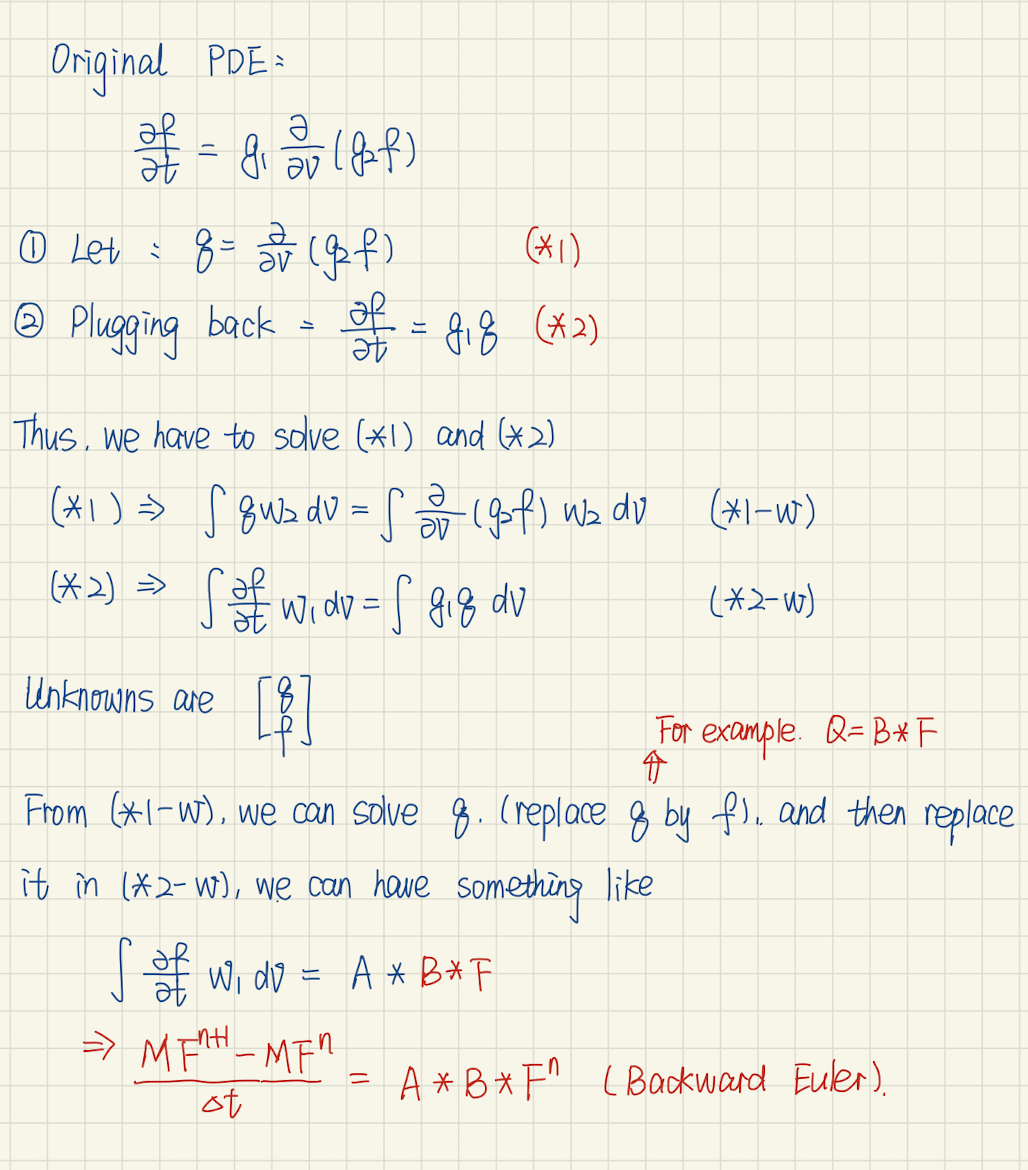 Original PDE:
∂f/∂t = g₁ ∂/∂v (g₂f)
① Let : q = ∂/∂v (g₂f) (*1)
② Plugging back = ∂f/∂t = g₁q (*2)
Thus, we have to solve (*1) and (*2)
(*1) ⇒ ∫ q w₂ dv = ∫ ∂/∂v (g₂f) w₂ dv (*1-w)
(*2) ⇒ ∫ ∂f/∂t w₁ dv = ∫ g₁q dv (*2-w)
Unknowns are [q f]
For example. Q = B*F
⇑
From (*1-w), we can solve q. (replace q by f). and then replace
it in (*2-w), we can have something like
∫ ∂f/∂t w₁ dv = A * B * F
⇒ (MFⁿ⁺¹ - MFⁿ)/Δt = A * B * Fⁿ (Backward Euler).